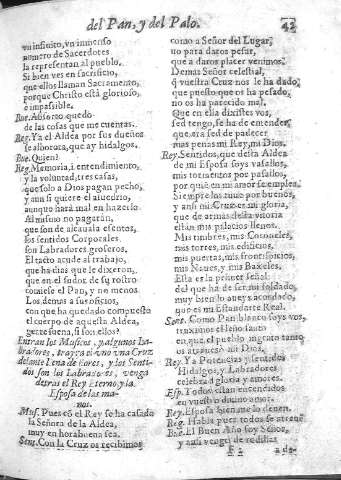 del Pan, y del Palo.
42
vn infinito, vn immenso
numero de Sacerdotes
la representan al pueblo.
Si bien ves en sacrificio,
que ellos llaman Sacramento,
porque Christo està glorioso,
e impassible.
Bue. Absorto quedo
de las cosas que me cuentas.
Reg. Ya el Aldea por sus dueños
se alborota, que ay hidalgos.
Bue. Quien?
Reg. Memoria, i entendimiento,
y la voluntad, tres casas,
que solo a Dios pagan pecho,
y aun si quiere el aluedrio,
aunque harà mal en hazerlo
Al mismo no pagaràn,
que son de alcauala esentos,
los sentidos Corporales
son Labradores groseros.
El tacto acude al trabajo,
que ha dias que le dixeron,
que en el sudor de su rostro
comiesse el Pan, y no menos.
Los demas a sus oficios,
con que ha quedado compuesto
el cuerpo de aquesta Aldea,
gente suena, si son ellos?
Entran los Musicos, y algunos Labradores,
traygan vno vna Cruz
delante llena de flores, y los Sentidos
son los Labradores, venga
detras el Rey Eterno, y la
Esposa de las manos.
Mus. Pues cõ el Rey se ha casado
la Señora de la Aldea,
muy en horabuena sea.
Sent. Con la Cruz os recibimos
como a Señor del Lugar,
no para daros pesar,
que a daros plazer venimos.
Demas Señor celestial,
q̃ vuestra Cruz nos le ha dado,
que puesto que os ha pesado,
no os ha parecido mal.
Que en ella dixistes vos,
sed tengo, se ha de entender,
que era sed de padecer
mas penas mi Rey, mi Dios.
Rey. Sentidos, que desta Aldea
de mi Esposa soys vassallos,
mis tormentos por passallos,
por quien mi amor se emplea.
Siempre los tuue por buenos,
y ansi mi Cruz es mi gloria,
que de armas desta vitoria
estàn mis palacios llenos.
Mis timbres, mis Coroneles,
mis torres, mis edificios,
mis puertas, mis frontispicios,
mis Naues, y mis Baxeles.
Esta es la primer señal
del que ha de ser mi soldado,
muy bien lo aueys acordado,
que es mi Estandarte Real.
Sent. Como Pan blanco soys vos,
traximos el leño santo
en que el pueblo ingrato tanto
os atrauessò mi Dios.
Rey. Ya Potencias y sentidos
Hidalgos, y Labradores
celebrad gloria y amores.
Esp. Todos estan encendidos
en vuestro diuino amor.
Rey. Esposa bien me lo deuen.
Reg. Habla pues todos se atreuen
Bue. El Buen Año soy Señor,
y ansi vengo de
F 2